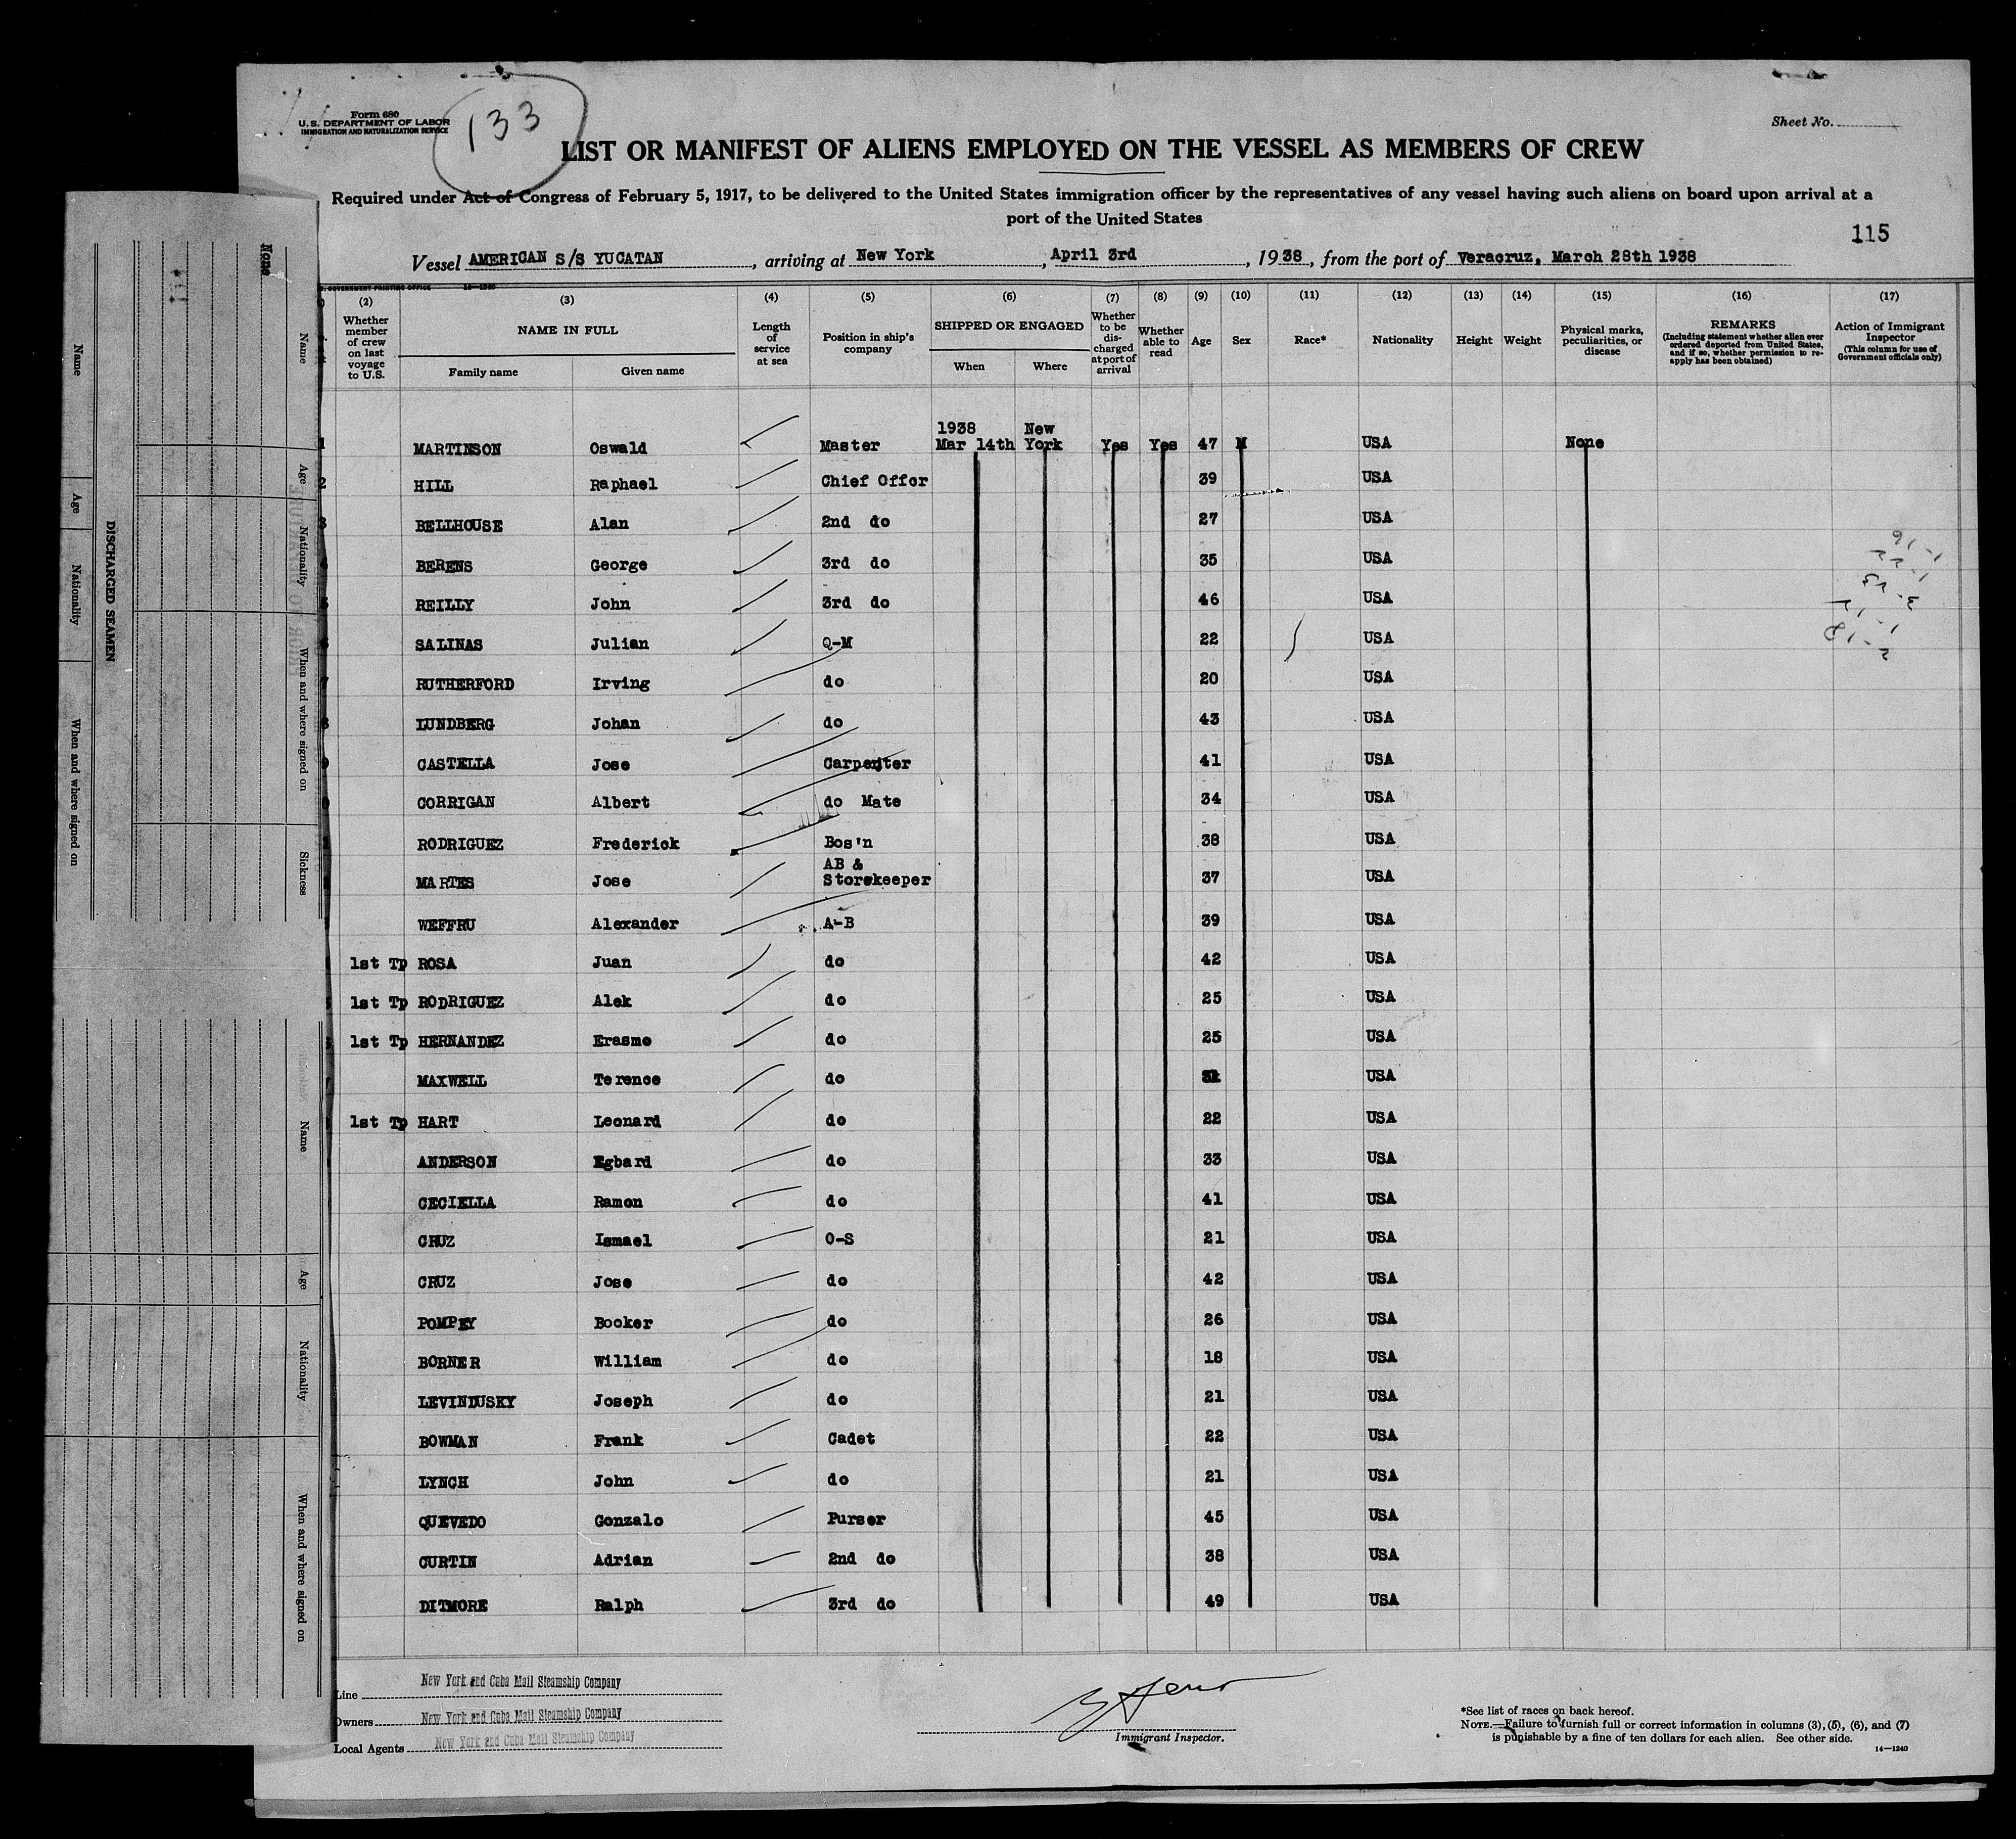 Form 680
U. S. DEPARTMENT OF LABOR
IMMIGRATION AND NATURALIZATION SERVICE
133
Sheet No.
LIST OR MANIFEST OF ALIENS EMPLOYED ON THE VESSEL AS MEMBERS OF CREW
Required under Act of Congress of February 5, 1917, to be delivered to the United States immigration officer by the representatives of any vessel having such aliens on board upon arrival at a
port of the United States
115
Vessel AMERICAN S/S YUCATAN, arriving at New York, April 3rd, 1938, from the port of Veracruz, March 28th 1938
U. S. GOVERNMENT PRINTING OFFICE 14—1240
(2) (3) (4) (5) (6) (7) (8) (9) (10) (11) (12) (13) (14) (15) (16) (17)
Whether member of crew on last voyage to U.S.
NAME IN FULL
Family name Given name
Length of service at sea
Position in ship's company
SHIPPED OR ENGAGED
When Where
Whether to be discharged at port of arrival
Whether able to read
Age Sex Race* Nationality Height Weight
Physical marks, peculiarities, or disease
REMARKS
(Including statement whether alien ever ordered deported from United States, and if so, whether permission to reapply has been obtained)
Action of Immigrant Inspector
(This column for use of Government officials only)
1938 New
1 MARTINSON Oswald Master Mar 14th York Yes Yes 47 M USA None
2 HILL Raphael Chief Offcr 39 USA
3 BELLHOUSE Alan 2nd do 27 USA
4 BERENS George 3rd do 35 USA
5 REILLY John 3rd do 46 USA
6 SALINAS Julian Q-M 22 USA
7 RUTHERFORD Irving do 20 USA
8 LUNDBERG Johan do 43 USA
9 CASTELLA Jose Carpenter 41 USA
0 CORRIGAN Albert do Mate 34 USA
RODRIGUEZ Frederick Bos'n 38 USA
AB &
MARTES Jose Storekeeper 37 USA
WEFFRU Alexander A-B 39 USA
1st Tp ROSA Juan do 42 USA
1st Tp RODRIGUEZ Alek do 25 USA
1st Tp HERNANDEZ Erasmo do 25 USA
MAXWELL Terence do USA
1st Tp HART Leonard do 22 USA
ANDERSON Egbard do 33 USA
CECIELLA Ramon do 41 USA
CRUZ Ismael O-S 21 USA
CRUZ Jose do 42 USA
POMPEY Booker do 26 USA
BORNER William do 18 USA
LEVINDUSKY Joseph do 21 USA
BOWMAN Frank Cadet 22 USA
LYNCH John do 21 USA
QUEVEDO Gonzalo Purser 45 USA
CURTIN Adrian 2nd do 38 USA
DITMORE Ralph 3rd do 49 USA
Line New York and Cuba Mail Steamship Company
Owners New York and Cuba Mail Steamship Company
Local Agents New York and Cuba Mail Steamship Company
Immigrant Inspector.
*See list of races on back hereof.
NOTE.—Failure to furnish full or correct information in columns (3), (5), (6), and (7)
is punishable by a fine of ten dollars for each alien. See other side.
14—1240
DISCHARGED SEAMEN
Name Age Nationality When and where signed on
None
Name Age Nationality When and where signed on Sickness
Name Age Nationality When and where signed on